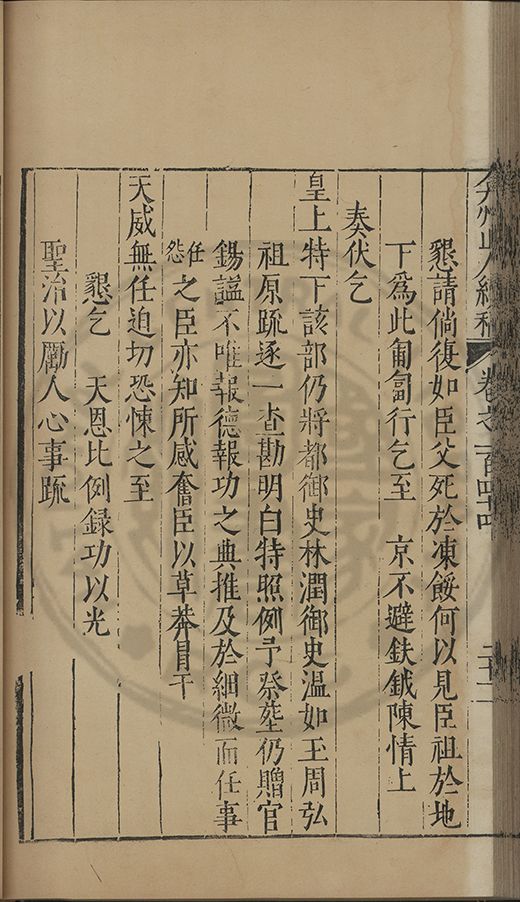 弇州山人續稿 卷之一百四十四 二十二
懇請倘復如臣父死於凍餒何以見臣祖於地
下爲此匍匐行乞至 京不避鈇鉞陳情上
奏伏乞
皇上特下該部仍將都御史林潤御史溫如玉周弘
祖原疏逐一查勘明白特照例予祭塟仍贈官
錫謚不唯報德報功之典推及於細微而任事
任怨之臣亦知所感奮臣以草莽冒干
天威無任迫切恐悚之至
懇乞 天恩比例録功以光
聖治以勵人心事疏